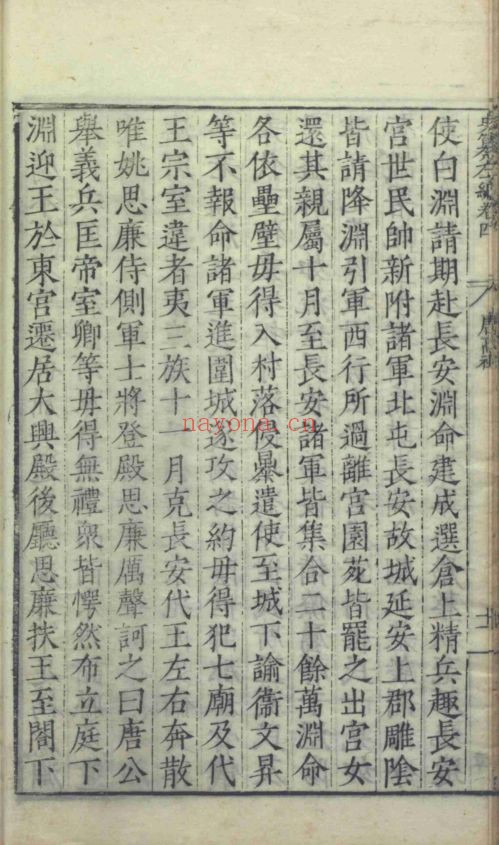 使白淵請期赴長安淵命建成選倉上精兵趣長安
宮世民帥新附諸軍北屯長安故城延安上郡雕陰
皆請降淵引軍西行所過離宮園苑皆罷之出宮女
還其親屬十月至長安諸軍皆集合二十餘萬淵命
各依壘壁毋得入村落侵暴遣使至城下諭衞文昇
等不報命諸軍進圍城遂攻之約毋得犯七廟及代
王宗室違者夷三族十一月克長安代王左右奔散
唯姚思廉侍側軍士將登殿思廉厲聲訶之曰唐公
舉義兵匡帝室卿等毋得無禮衆皆愕然布立庭下
淵迎王於東宮遷居大興殿後廳思廉扶王至閤下
左編卷四
唐高祖
nayona.cn